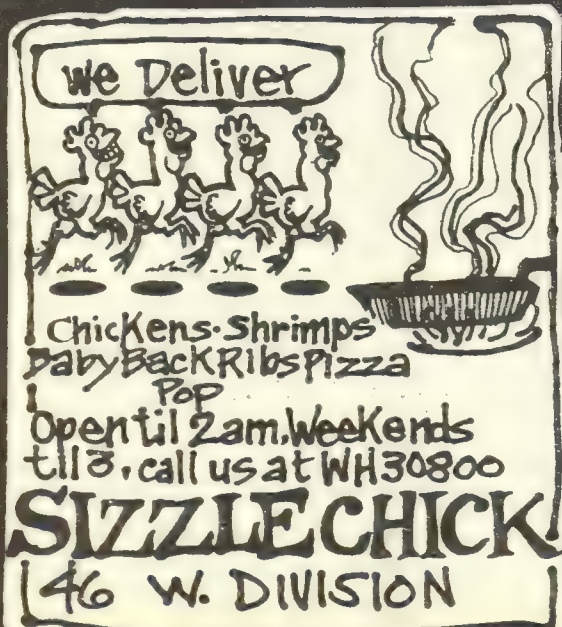 we Deliver
Chickens·Shrimps
BabyBackRibsPizza
Pop
Open til 2am,Weekends
til 3, call us at WH30800
SIZZLECHICK
46 W. DIVISION